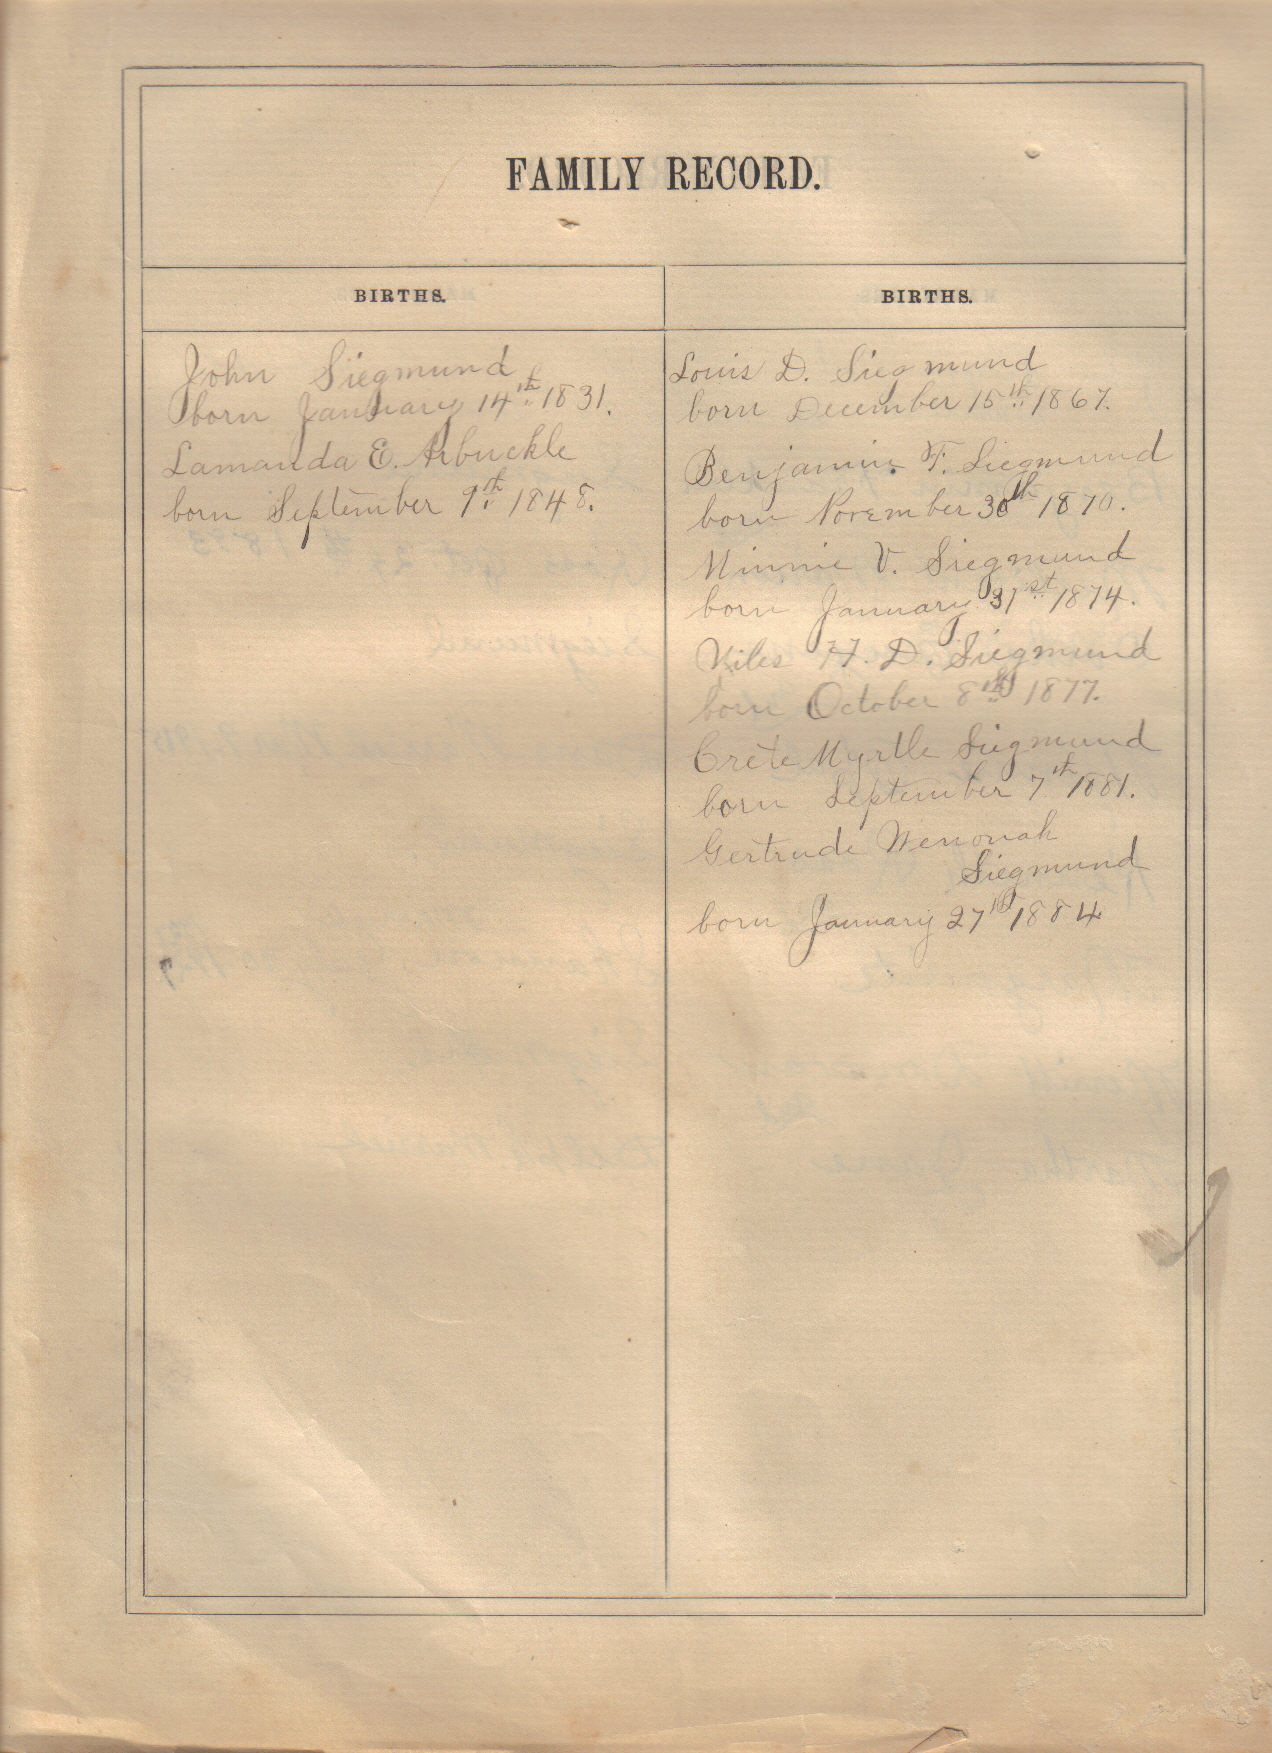 FAMILY RECORD.
BIRTHS.
John Siegmund
born January 14th 1831.
Lamanda E. Arbuckle
born September 9th 1848.
BIRTHS.
Louis D. Siegmund
born December 15th 1867.
Benjamin F. Siegmund
born November 30th 1870.
Minnie V. Siegmund
born January 31st 1874.
H. D. Siegmund
born October 8th 1877.
Crete Myrtle Siegmund
born September 7th 1881.
Gertrude Wenonah
Siegmund
born January 27th 1884